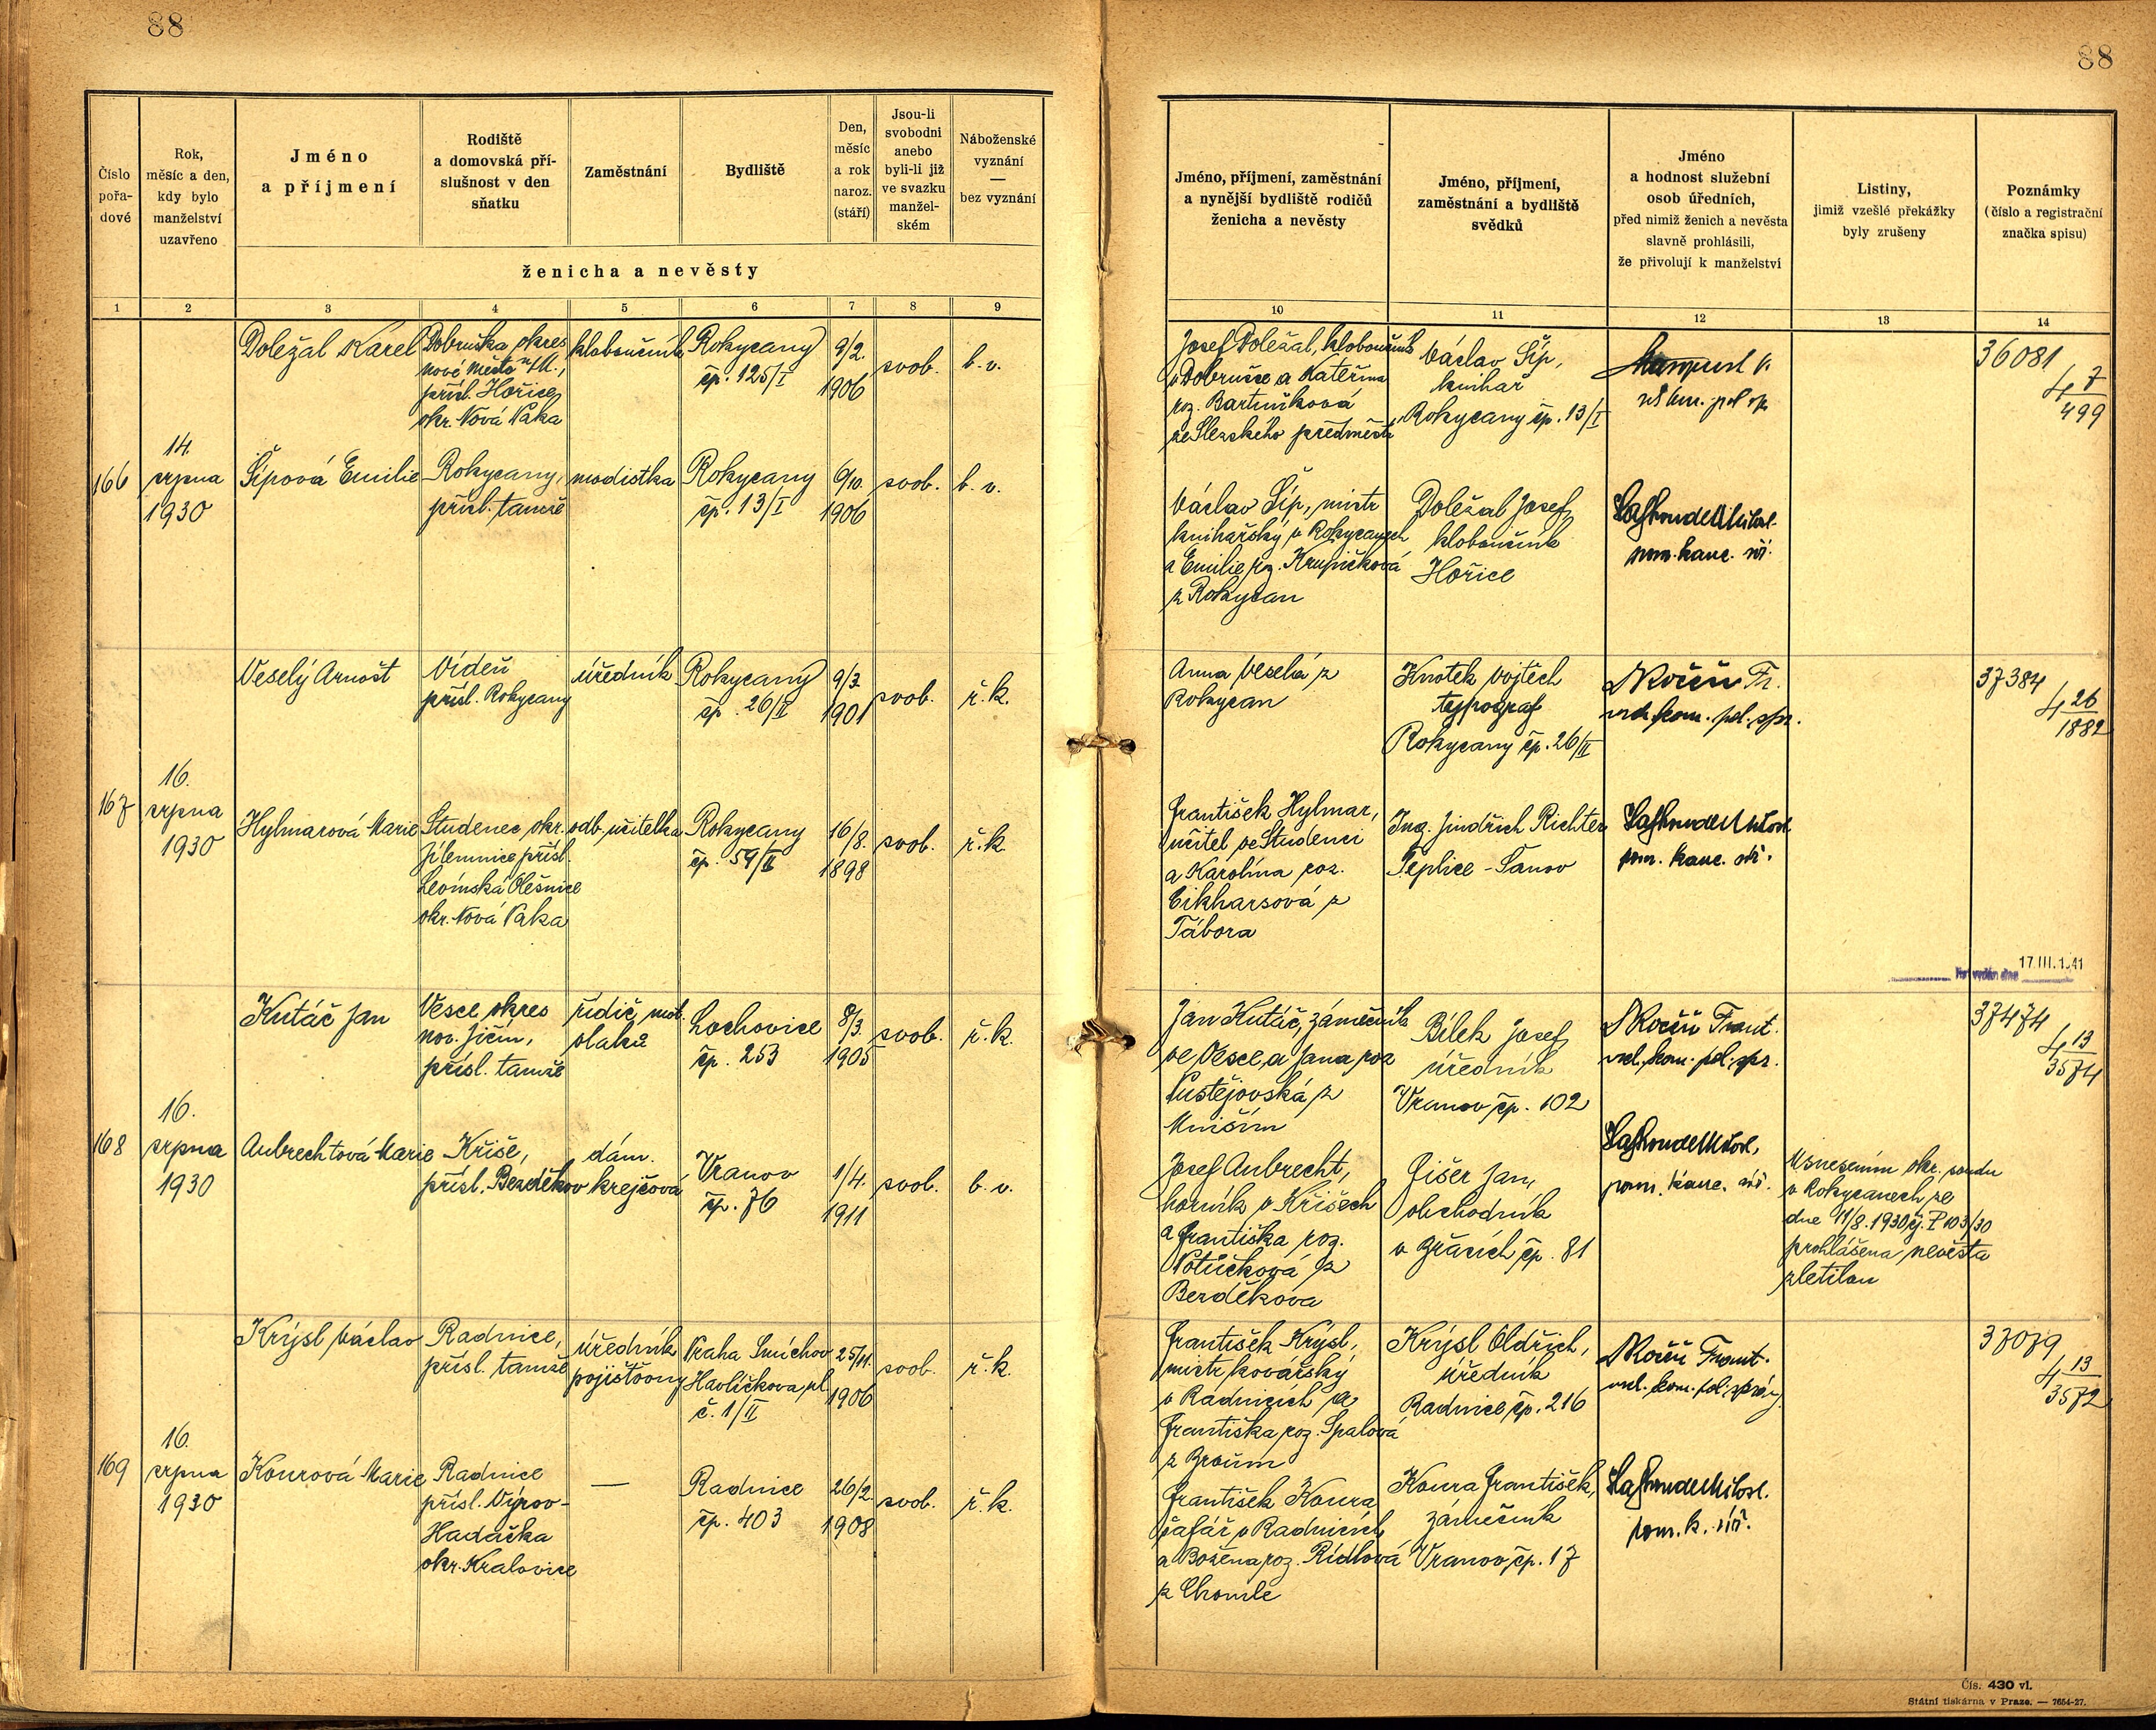 88
88
Číslo
pořa-
dové
Rok,
měsíc a den,
kdy bylo
manželství
uzavřeno
Jméno
a příjmení
Rodiště
a domovská pří-
slušnost v den
sňatku
Zaměstnání
Bydliště
Den,
měsíc
a rok
naroz.
(stáří)
Jsou-li
svobodni
anebo
byli-li již
ve svazku
manžel-
ském
Náboženské
vyznání
—
bez vyznání
ženicha a nevěsty
Jméno, příjmení, zaměstnání
a nynější bydliště rodičů
ženicha a nevěsty
Jméno, příjmení,
zaměstnání a bydliště
svědků
Jméno
a hodnost služební
osob úředních,
před nimiž ženich a nevěsta
slavně prohlásili,
že přivolují k manželství
Listiny,
jimiž vzešlé překážky
byly zrušeny
Poznámky
(číslo a registrační
značka spisu)
1 2 3 4 5 6 7 8 9
10 11 12 13 14
166
14.
srpna
1930
Doležal Karel
Dobruška okres
nové Město n/M.,
přísl. Hořice
okr. Nová Paka
kloboučník
Rokycany
čp. 125/I
9/2.
1906
svob.
b. v.
Josef Doležal, kloboučník
v Dobrušce a Kateřina
roz. Bartníková
ze Slezského předměstí
Václav Šíp,
knihař
Rokycany čp. 13/I
36081
4 7/499
Šípová Emilie
Rokycany,
přísl. tamže
modistka
Rokycany
čp. 13/I
6/10.
1906
svob.
b. v.
Václav Šíp, mistr
knihařský v Rokycanech
a Emilie roz. Krupičková
z Rokycan
Doležal Josef
kloboučník
Hořice
pom. kanc. úř.
167
16.
srpna
1930
Veselý Arnošt
Vídeň
přísl. Rokycany
úředník
Rokycany
čp. 26/II
9/3
1901
svob.
ř. k.
Anna Veselá z
Rokycan
Knotek Vojtěch
typograf
Rokycany čp. 26/II
vrch. kom. pol. spr.
37384
4 26/1882
Hylmarová Marie
Studenec okr.
Jilemnice přísl.
Levínská Olešnice
okr. Nová Paka
odb. učitelka
Rokycany
čp. 59/II
16/8.
1898
svob.
ř. k.
František Hylmar,
učitel ve Studenci
a Karolína roz.
Eikharsová z
Tábora
Ing. Jindřich Richter
Teplice - Šanov
pom. kanc. úř.
17.III.1941
168
16.
srpna
1930
Kutáč Jan
Vesce okres
nov. Jičín,
přísl. tamže
řidič mot.
vlaků
Lochovice
čp. 253
8/3.
1905
svob.
ř. k.
Jan Kutáč, zámečník
ve Vesce, a Jana roz
Pustějovská z
Mniším
Bílek Josef
úředník
Vranov čp. 102
vrch. kom. pol. spr.
37474
4 13/3574
Aubrechtová Marie
Kříše,
přísl. Bezděkov
dám.
krejčová
Vranov
čp. 76
1/4.
1911
svob.
b. v.
Josef Aubrecht,
horník v Kříšech
a Františka roz.
Potůčková z
Bezděkova
Fišer Jan,
obchodník
v Břasích čp. 81
pom. kanc. úř.
Usnesením okr. soudu
v Rokycanech ze
dne 11/8.1930 čj. P 103/30
prohlášena nevěsta
zletilou
169
16.
srpna
1930
Krýsl Václav
Radnice,
přísl. tamže
úředník
pojišťovny
Praha Smíchov
Havlíčkova ul
č. 1/II
25/11.
1906
svob.
ř. k.
František Krýsl,
mistr kovářský
v Radnicích a
Františka roz. Spalová
z Broum
Krýsl Oldřich,
úředník
Radnice čp. 216
37079
4 13/3572
Kourová Marie
Radnice
přísl. Vejvov-
Hadačka
okr. Kralovice
—
Radnice
čp. 403
26/2.
1908
svob.
ř. k.
František Koura
šafář v Radnicích
a Božena roz. Rídlová
z Chomle
Koura František,
zámečník
Vranov čp. 17
pom. k. úř.
Čís. 430 vl.
Státní tiskárna v Praze. — 7654-27.